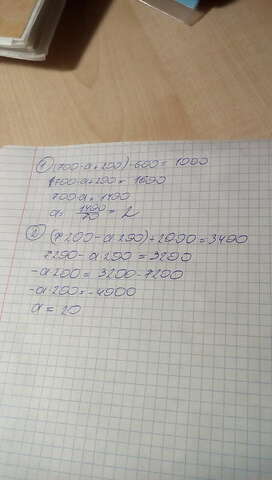 ① (700·a+200)-600=1000
700·a+200=1600
700·a=1400
a= 1400/70 = 2
② (7200-a·200)+2000=3400
7200-a·200=3200
-a·200=3200-7200
-a·200=-4000
a=20